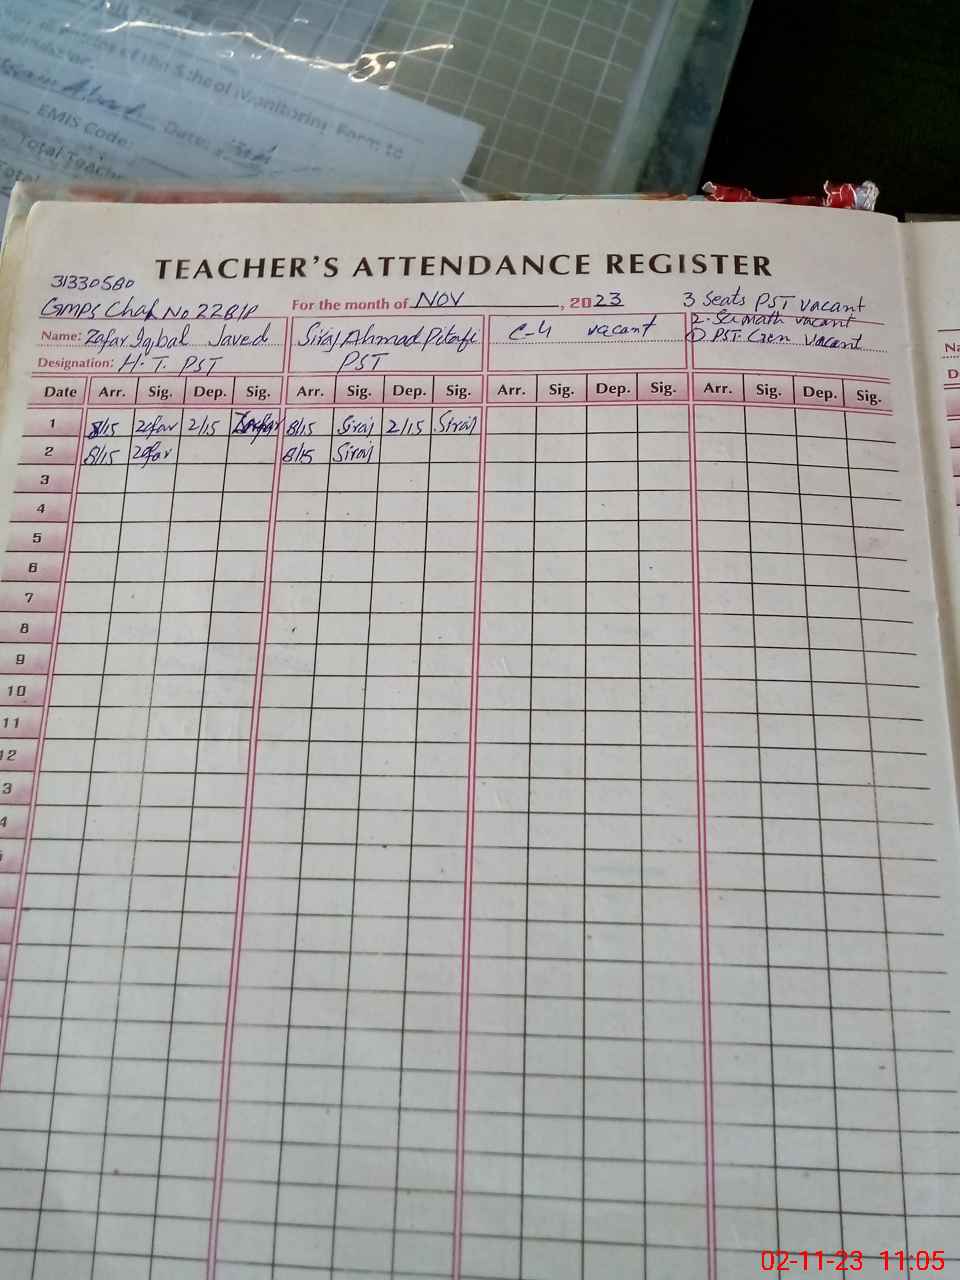 of the School Monitoring Form to
EMIS Code:
Date:
Total Teache
TEACHER'S ATTENDANCE REGISTER
31330580
GMPS Chak No 228/P
For the month of NOV, 2023
3 Seats PST vacant
2. Sci math vacant
① PST. Gen. vacant
Name: Zafar Iqbal Javed
Siraj Ahmad Pitafi
C-4 vacant
Designation: H.T. PST
PST
Date Arr. Sig. Dep. Sig. Arr. Sig. Dep. Sig. Arr. Sig. Dep. Sig. Arr. Sig. Dep. Sig.
1 8/15 Zafar 2/15 Zafar 8/15 Siraj 2/15 Siraj
2 8/15 Zafar 8/15 Siraj
3
4
5
6
7
8
9
10
11
12
3
4
02-11-23 11:05